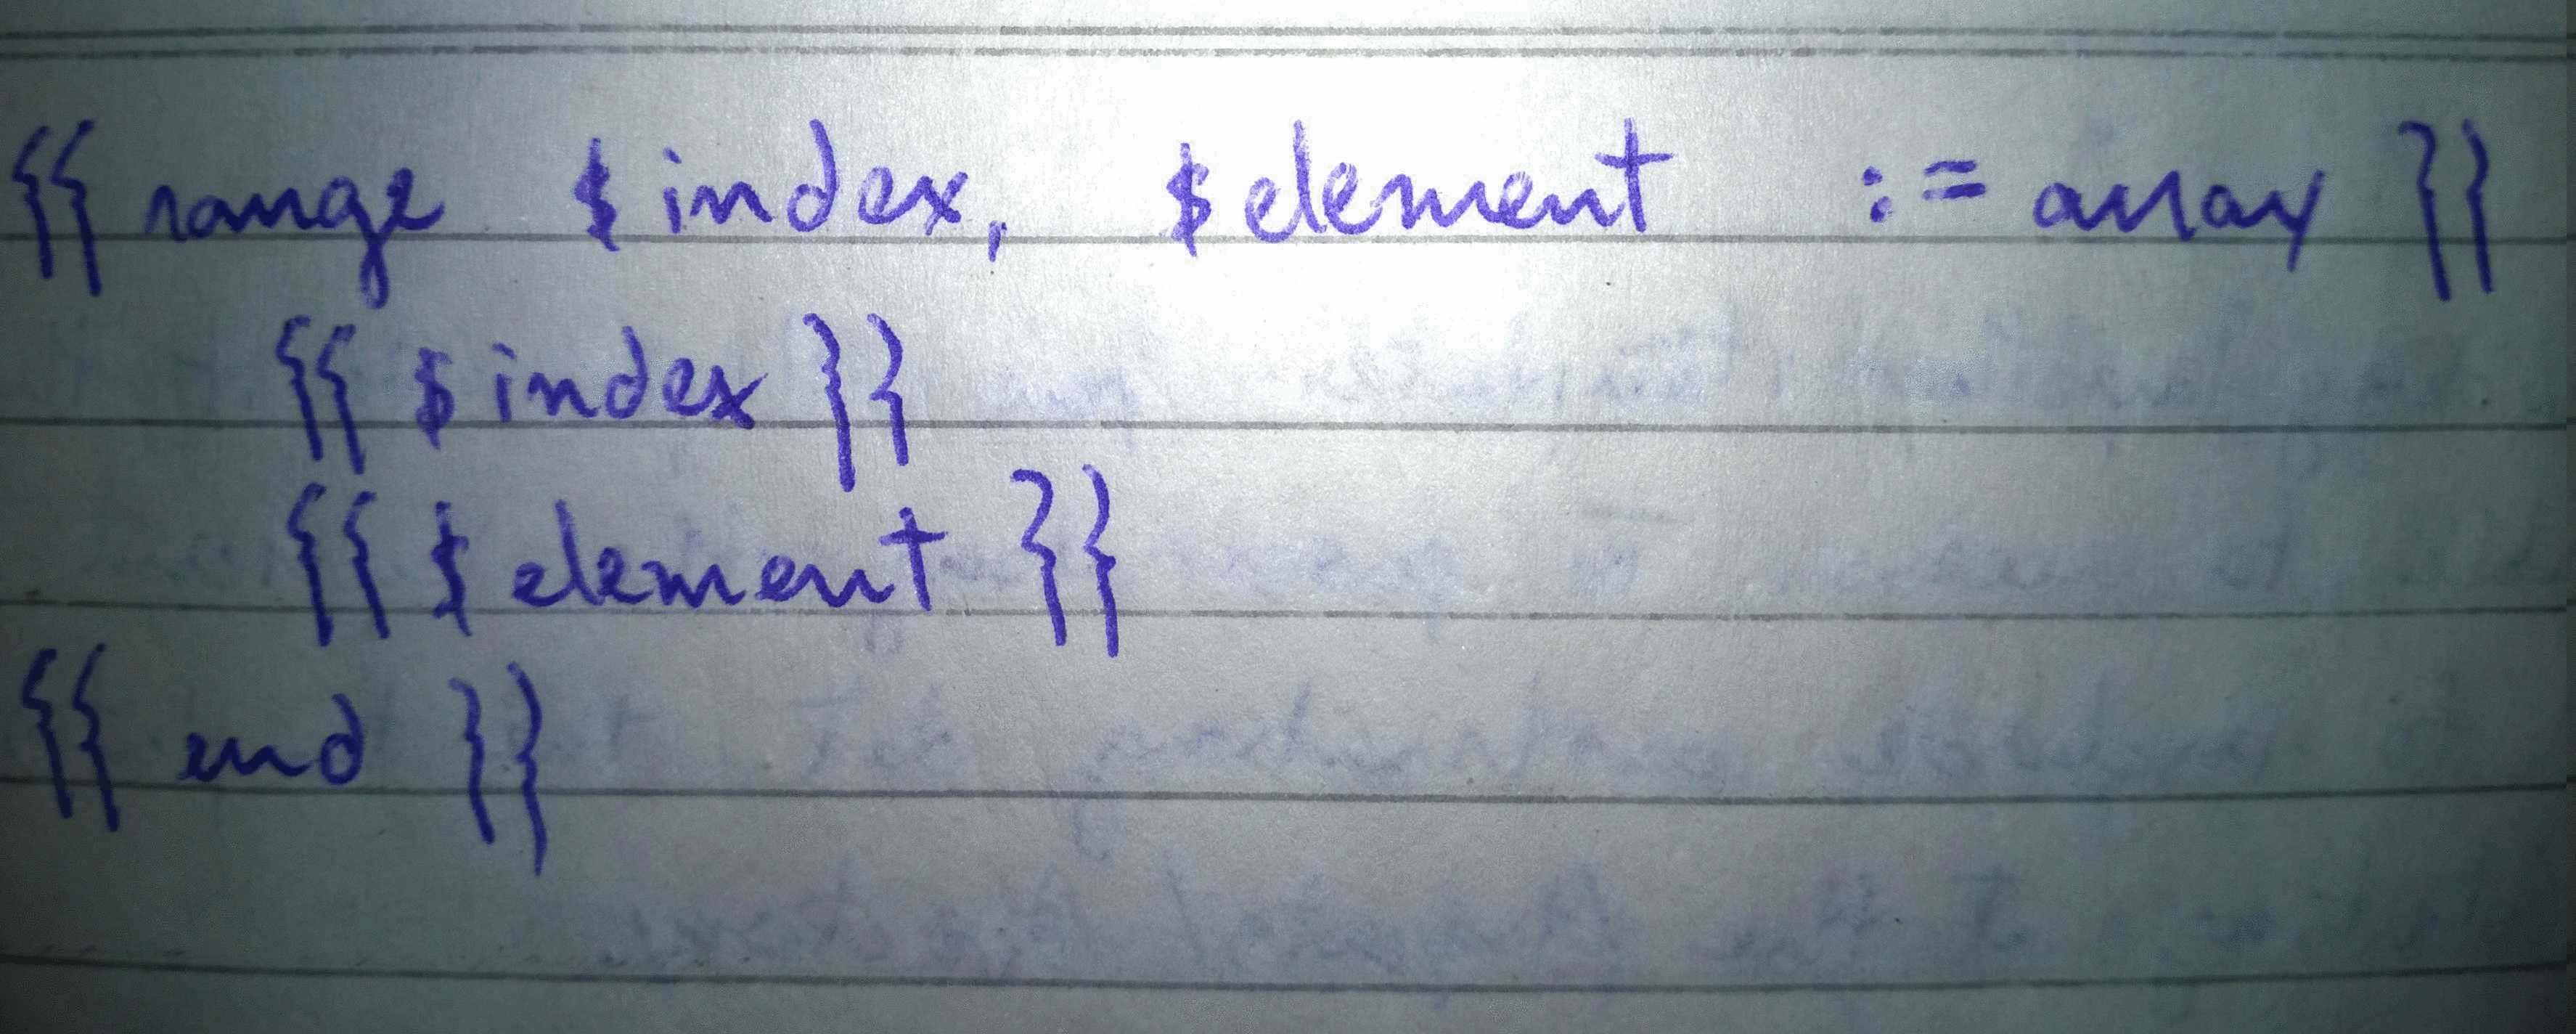 {{ range $index, $element := array }}
{{ $index }}
{{ $element }}
{{ end }}